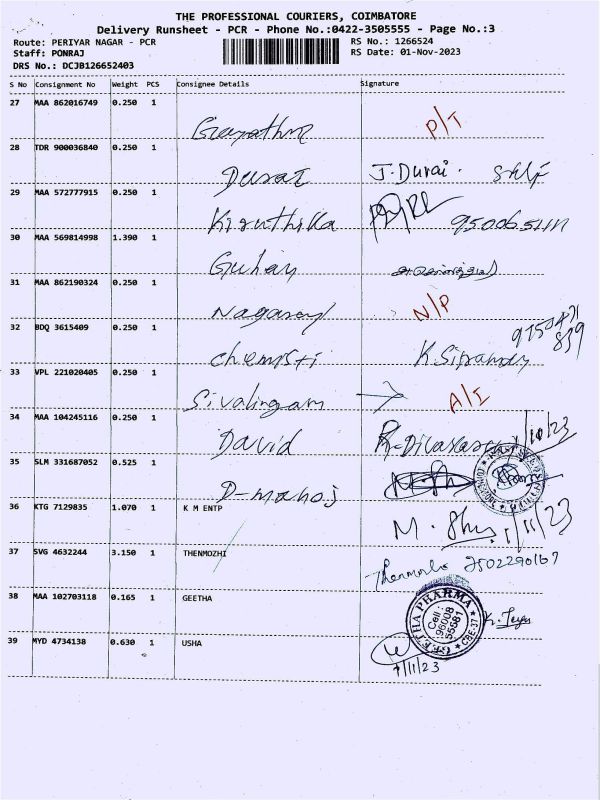 THE PROFESSIONAL COURIERS, COIMBATORE
Delivery Runsheet - PCR - Phone No.:0422-3505555 - Page No.:3
Route: PERIYAR NAGAR - PCR RS No.: 1266524
Staff: PONRAJ RS Date: 01-Nov-2023
DRS No.: DCJB126652403
S No Consignment No Weight PCS Consignee Details Signature
27 MAA 862016749 0.250 1
Gayathri P/T
28 TDR 900036840 0.250 1
Durai J. Durai.
29 MAA 572777915 0.250 1
Kiruthika
30 MAA 569814998 1.390 1
Guhan
31 MAA 862190324 0.250 1
Nagaraj N/P
32 BDQ 3615409 0.250 1
chemisti
33 VPL 221020405 0.250 1
Sivalingam A/I
34 MAA 104245116 0.250 1
David
35 SLM 331687052 0.525 1
D-manoj
36 KTG 7129835 1.070 1 K M ENTP
M. 1/11/23
37 SVG 4632244 3.150 1 THENMOZHI
Thenmozhi
38 MAA 102703118 0.165 1 GEETHA
GEETHA PHARMA Cell : 96008 95581 CBE-37
39 MYD 4734138 0.630 1 USHA
1/11/23